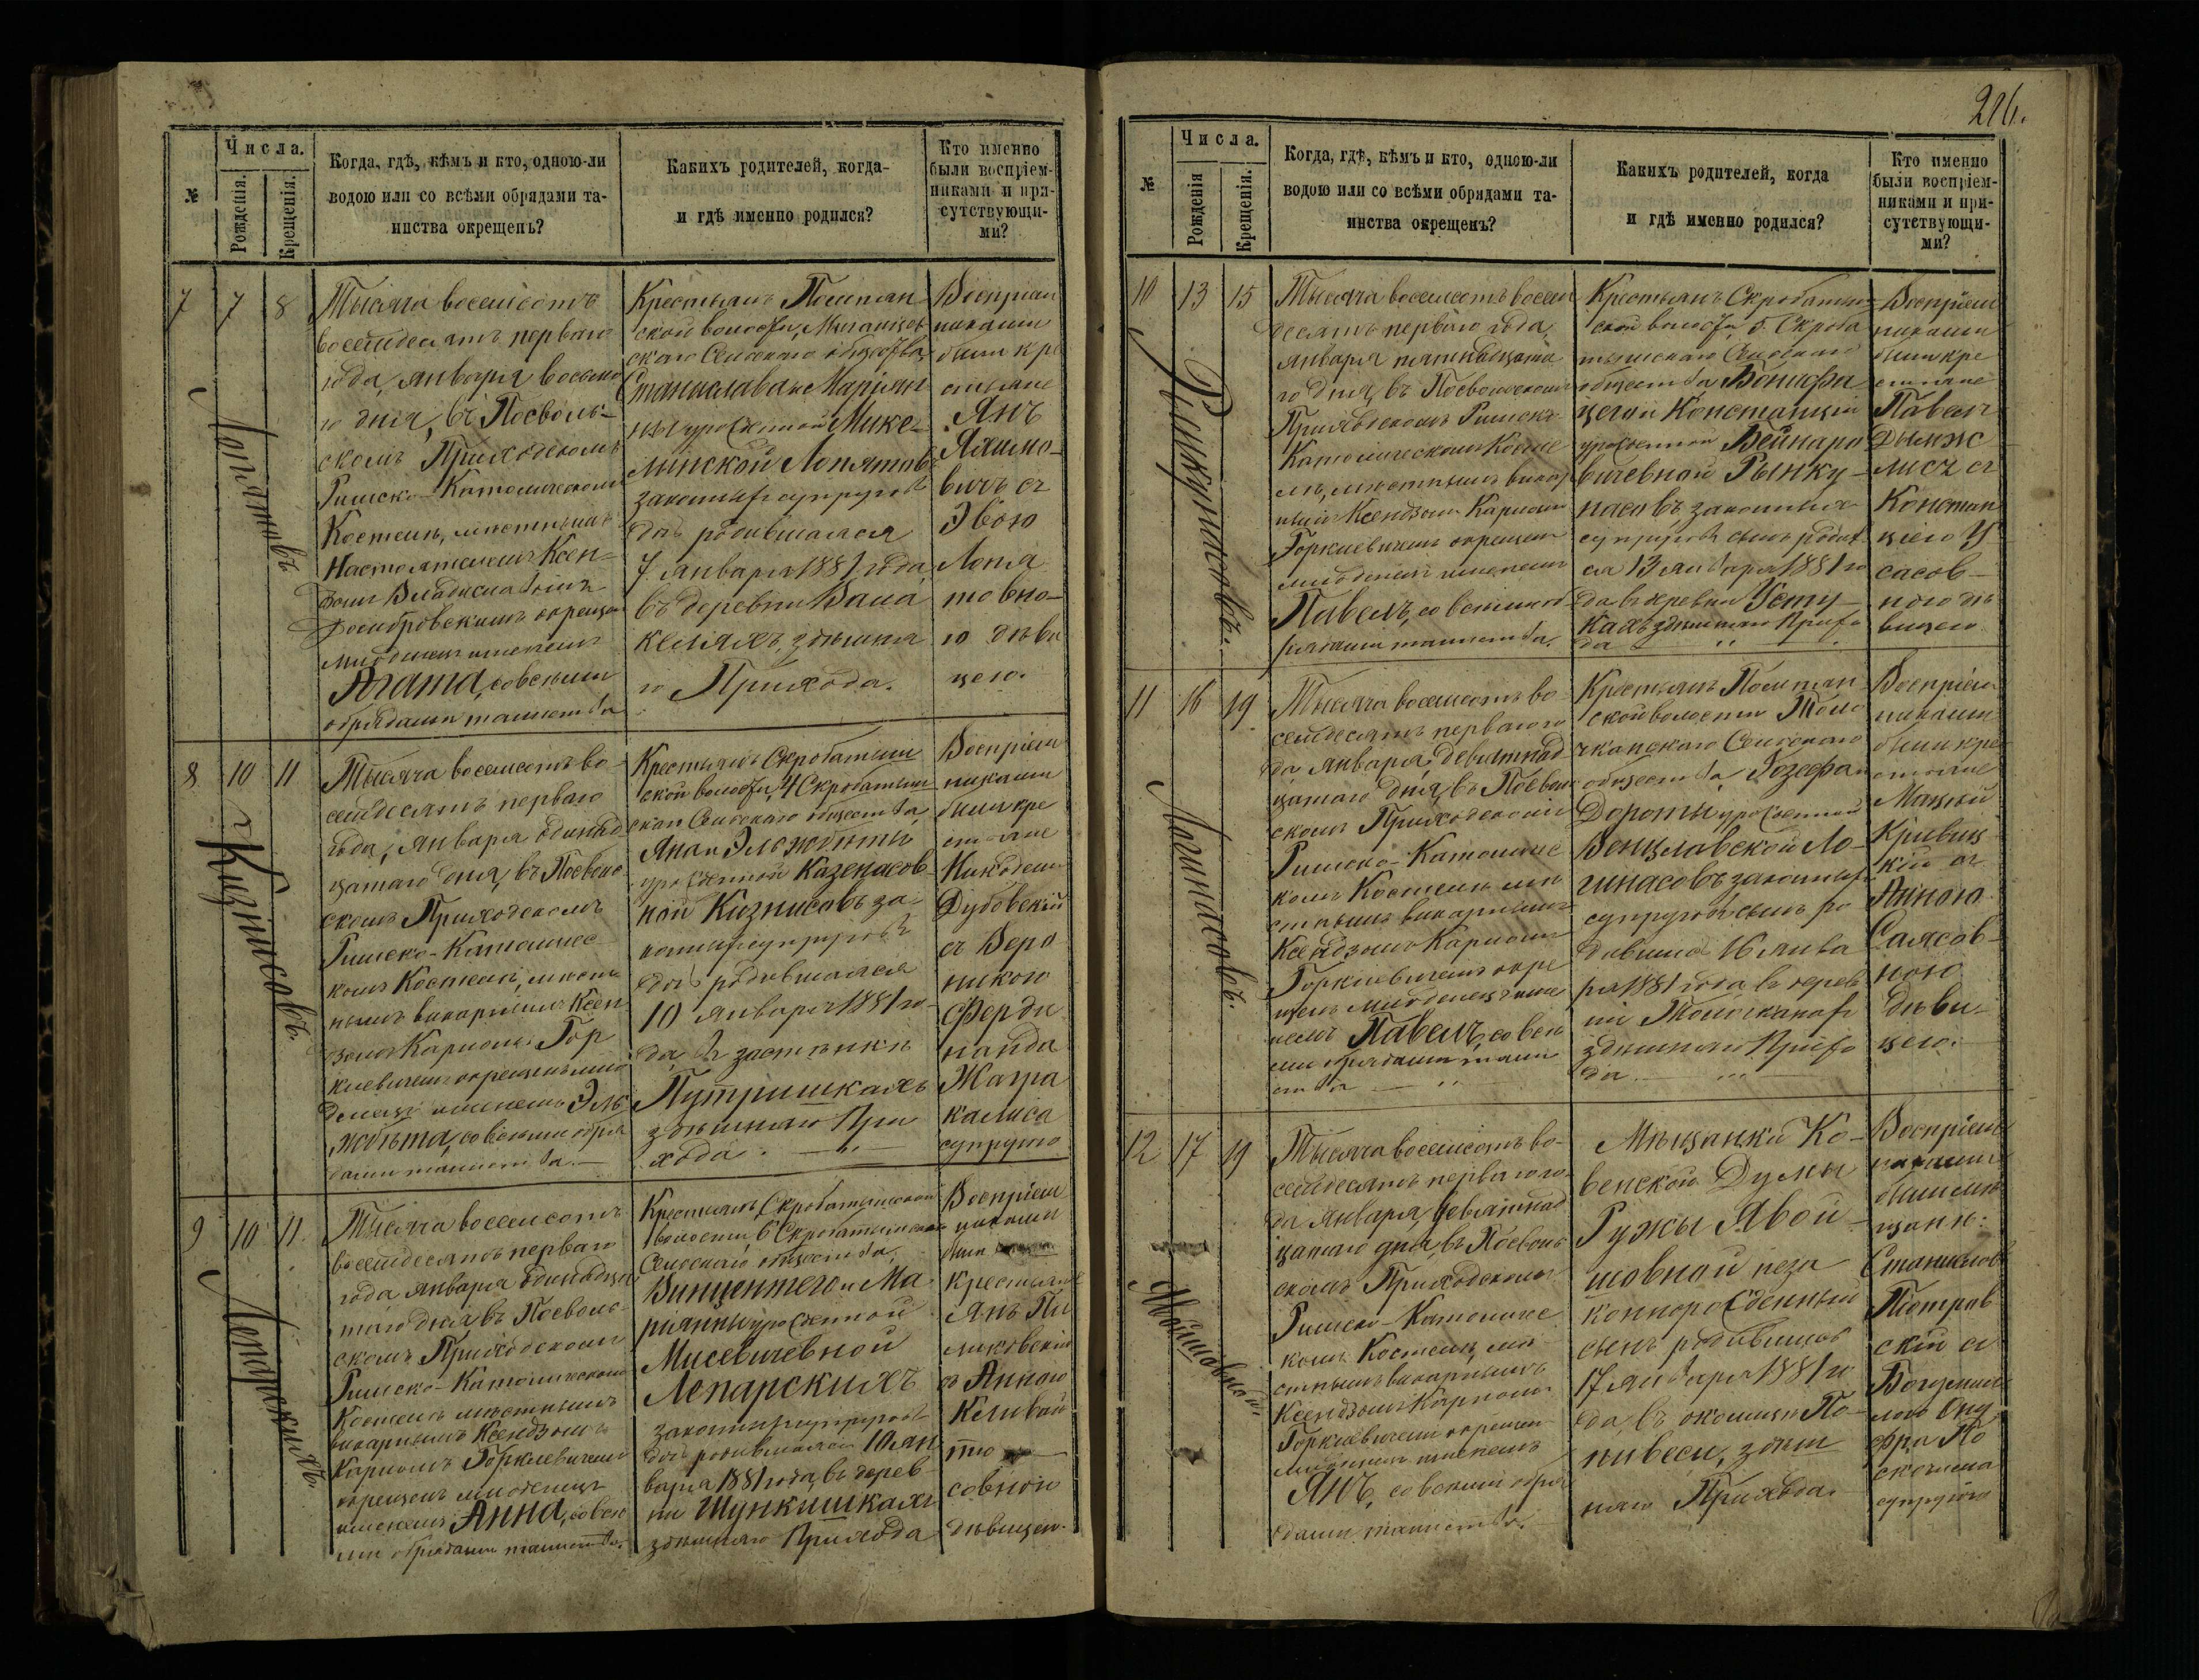 216.
Числа.
№
Рожденія.
Крещенія.
Когда, гдѣ, кѣмъ и кто, одною-ли
водою или со всѣми обрядами та-
инства окрещенъ?
Какихъ родителей, когда-
и гдѣ именно родился?
Кто именно
были воспріем-
никами и при-
сутствующи-
ми?
7
7
8
Тысяча восемсотъ
восемдесятъ перваго
года, января восьма-
го дня, въ Посволь-
скомъ Приходскомъ
Римско-Католическомъ
Костелѣ, мѣстнымъ
Настоятелемъ Ксен-
дзомъ Владиславомъ
окрещенъ
младенецъ именемъ
Агата, со всѣми
обрядами таинства
Крестьянъ
ской волости,
скаго Сельскаго общества,
Станислава и Маріян-
ны урожденной Мике-
линской
законныхъ супруговъ
дочь родившаяся
7 января 1881 года
въ деревни
здѣшня
го Прихода.
Воспріем
никами
были кре
стьяне
Янъ
Якимо-
вичъ съ
Эвою
Лопа
товно-
ю дѣви
цею.
8
10
11
Казнисовъ.
Тысяча восемсотъ во-
семдесятъ перваго
года, января одинад
цатаго дня, въ Посволь
скомъ Приходскомъ
Римско-Католичес-
комъ Костелѣ, мѣст
нымъ викарнымъ Ксен
дзомъ Карломъ Гор
киевичемъ окрещенъ мла
денецъ именемъ Эль
жбѣта, со всѣми обря
дами таинства.—
Крестьянъ Скробатыш
ской волости, 4 Скробатыш
скаго Сельскаго общества,
Яна и Эльжбѣты
урожденной Казенасов-
ной Казнисовъ за-
конныхъ супруговъ
дочь родившаяся
10 января 1881 го-
да, въ застѣнкѣ
Путришкахъ
здѣшняго При
хода.
Воспріем
никами
были кре
стьяне
Никодем
Дубовскій
съ Веро
никою
Ферди
нанда
Жагра
калиса
супругою
9
10
11
Лепарскихъ.
Тысяча восемсотъ
восемдесятъ перваго
года января одинадца
таго дня въ Посволь-
скомъ Приходскомъ
Римско-Католическомъ
Костелѣ мѣстнымъ
викарнымъ Ксендзомъ
Карломъ Горкиевичемъ
окрещенъ младенецъ
именемъ Анна, со всѣ
ми обрядами таинства.
Крестьянъ Скробатышской
волости, 6 Скробатышскаго
Сельскаго общества,
Винцентего и Ма
ріянны урожденной
Мисевичевной
Лепарскихъ
законныхъ супруговъ
дочь родившаяся 10 ян
варя 1881 года, въ дерев-
ни Шункишкахъ
здѣшняго Прихода
Воспріем
никами
были
крестьяне
Янъ
съ Анною
совною
дѣвицею.
Числа.
№
Рожденія
Крещенія.
Когда, гдѣ, кѣмъ и кто, одною-ли
водою или со всѣми обрядами та-
инства окрещенъ?
Какихъ родителей, когда
и гдѣ именно родился?
Кто именно
были воспріем-
никами и при-
сутствующи-
ми?
10
13
15
Рынкунасовъ.
Тысяча восемсотъ восем
десятъ перваго года,
января пятнадцата
го дня, въ Посвольскомъ
Приходскомъ Римско-
Католическомъ Косте
лѣ, мѣстнымъ викар
нымъ Ксендзомъ Карломъ
Горкиевичемъ окрещенъ
младенецъ именемъ
Павелъ, со всѣми об
рядами таинства.
Крестьянъ Скробатыш
ской волости, 5 Скроба
тышскаго Сельскаго
общества Бонифа
цего и Констанціи
урожденной Бейнаро
вичевной Рынку-
насовъ законныхъ
супруговъ сынъ родил
ся 13 января 1881 го
да въ деревни Усту-
кахъ здѣшняго Прихо
да
Воспріем
никами
были кре
стьяне
Павелъ
съ
Констан
ціею У
сасов-
ною дѣ
вицею
11
16
19
Тысяча восемсотъ во
семдесятъ перваго го
да января, девятнад
цатаго дня, въ Посволь
скомъ Приходскомъ
Римско-Католичес
комъ Костелѣ мѣ
стнымъ викарнымъ
Ксендзомъ Карломъ
Горкиевичемъ окре
щенъ младенецъ име
немъ Павелъ, со всѣ
ми обрядами таин
ства
Крестьянъ
ской волости
Сельскаго
общества, Іозефа и
Дороты урожденной
Венцлавской Ло-
гинасовъ законныхъ
супруговъ сынъ ро
дившійся 16 янва
ря 1881 года въ дерев
ни
здѣшняго Прихо
да
Воспріем
никами
были кре
стьяне
Мацей
Кривиц
кій съ
Анною
Саласов-
ною
дѣви-
цею.
12
17
19
Явойшовной.
Тысяча восемсотъ во-
семдесятъ перваго го
да января, девятнад
цатаго дня, въ Посволь
скомъ Приходскомъ
Римско-Католичес
комъ Костелѣ, мѣ
стнымъ викарнымъ
Ксендзомъ Карломъ
Горкиевичемъ окрещен
младенецъ именемъ
Янъ, со всѣми обря
дами таинства.
Мѣщанки Ко-
венской Думы
Ружы Явой-
шовной неза
коннорожденный
сынъ родившійся
17 января 1881 го
да, въ околицѣ По-
нивеси, здѣш
няго Прихода.
Воспріем
никами
были мѣ
щане:
Станиславъ
Піотров
скій съ
Ону
фра
супругою